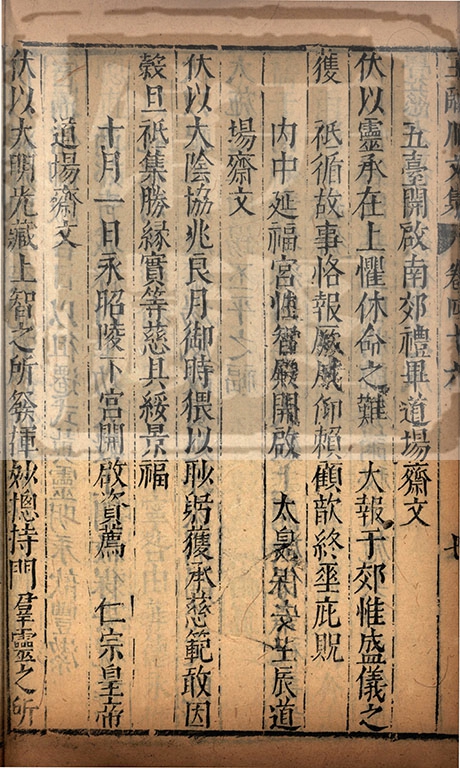 王臨川文集 卷四十六 七
五臺開啟南郊禮畢道場齋文
伏以靈承在上懼休命之難 大報于郊惟盛儀之
獲 祗循故事恪報厥成仰賴顧歆終垂庇貺
內中延福宮性智殿開啟 太皇 生辰道
場齋文
伏以大陰協兆良月御時猥以眇躬獲承慈範敢因
穀旦祗集勝緣實等慈其綏景福
十月一日永昭陵下宮開啟資薦 仁宗皇帝
道場齋文
伏以大明光藏上智之所發揮妙總持門羣靈之所